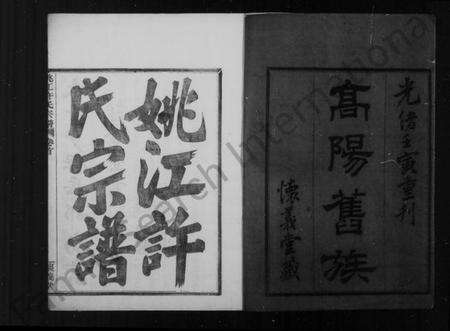 光緒壬寅重刊
高陽舊族
懷義堂藏
姚江許
氏宗譜